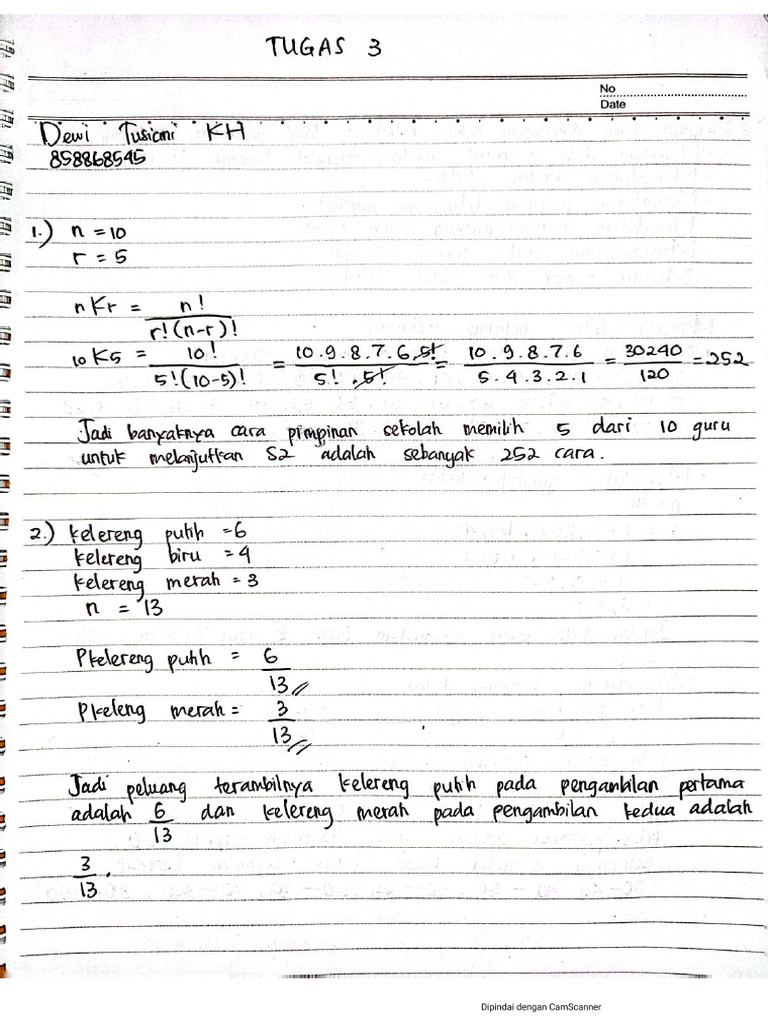 TUGAS 3
No
Date
Dewi Tusiani KH
858868545
1.) n = 10
r = 5
nKr = n! / r!(n-r)!
10K5 = 10! / 5!(10-5)! = 10.9.8.7.6.5! / 5!.5! = 10.9.8.7.6 / 5.4.3.2.1 = 30240 / 120 = 252
Jadi banyaknya cara pimpinan sekolah memilih 5 dari 10 guru
untuk melanjutkan S2 adalah sebanyak 252 cara.
2.) kelereng putih = 6
kelereng biru = 4
kelereng merah = 3
n = 13
Pkelereng putih = 6 / 13
Pkeleng merah = 3 / 13
Jadi peluang terambilnya kelereng putih pada pengambilan pertama
adalah 6 / 13 dan kelereng merah pada pengambilan kedua adalah
3 / 13.
Dipindai dengan CamScanner